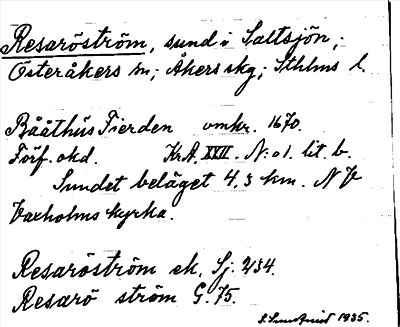 Resaröström, sund i Saltsjön;
Österåkers sn; Åkers skg; Sthlms l.
Bååthüs Fierden omkr. 1670.
Förf. okd. KrA. XXII. N:o 1. lit. b.
Sundet beläget 4,3 km. NV
Vaxholms kyrka.
Resaröström ek. Sj. 434.
Resarö ström G. 75.
1935.